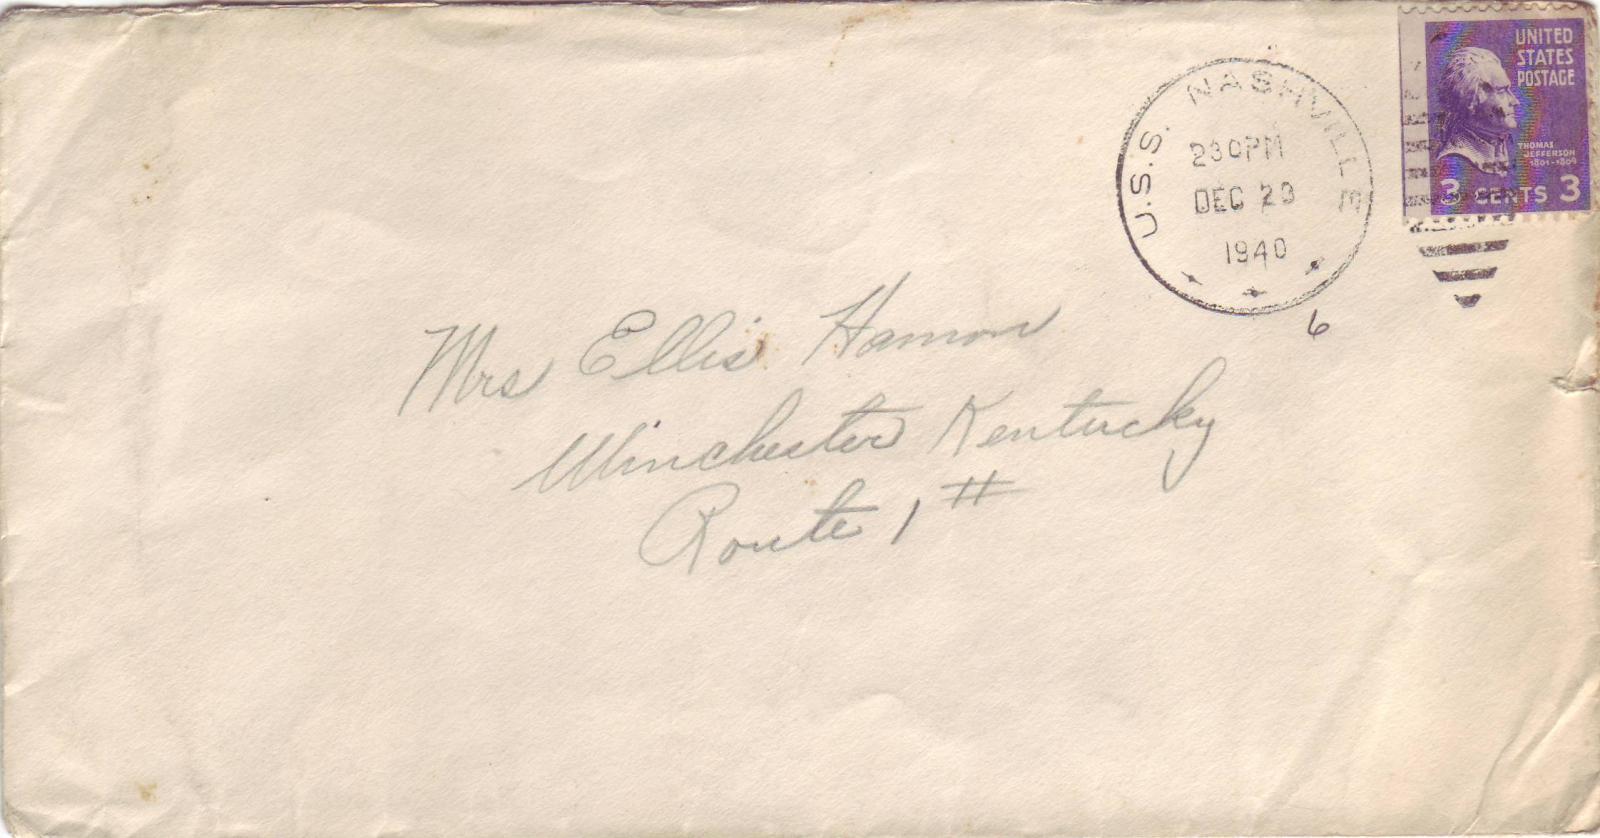 UNITED
STATES
POSTAGE
THOMAS
JEFFERSON
1801-1809
3 CENTS 3
U.S.S. NASHVILLE
230PM
DEC 23
1940
6
Mrs Ellis Hamon
Winchester Kentucky
Route 1 #